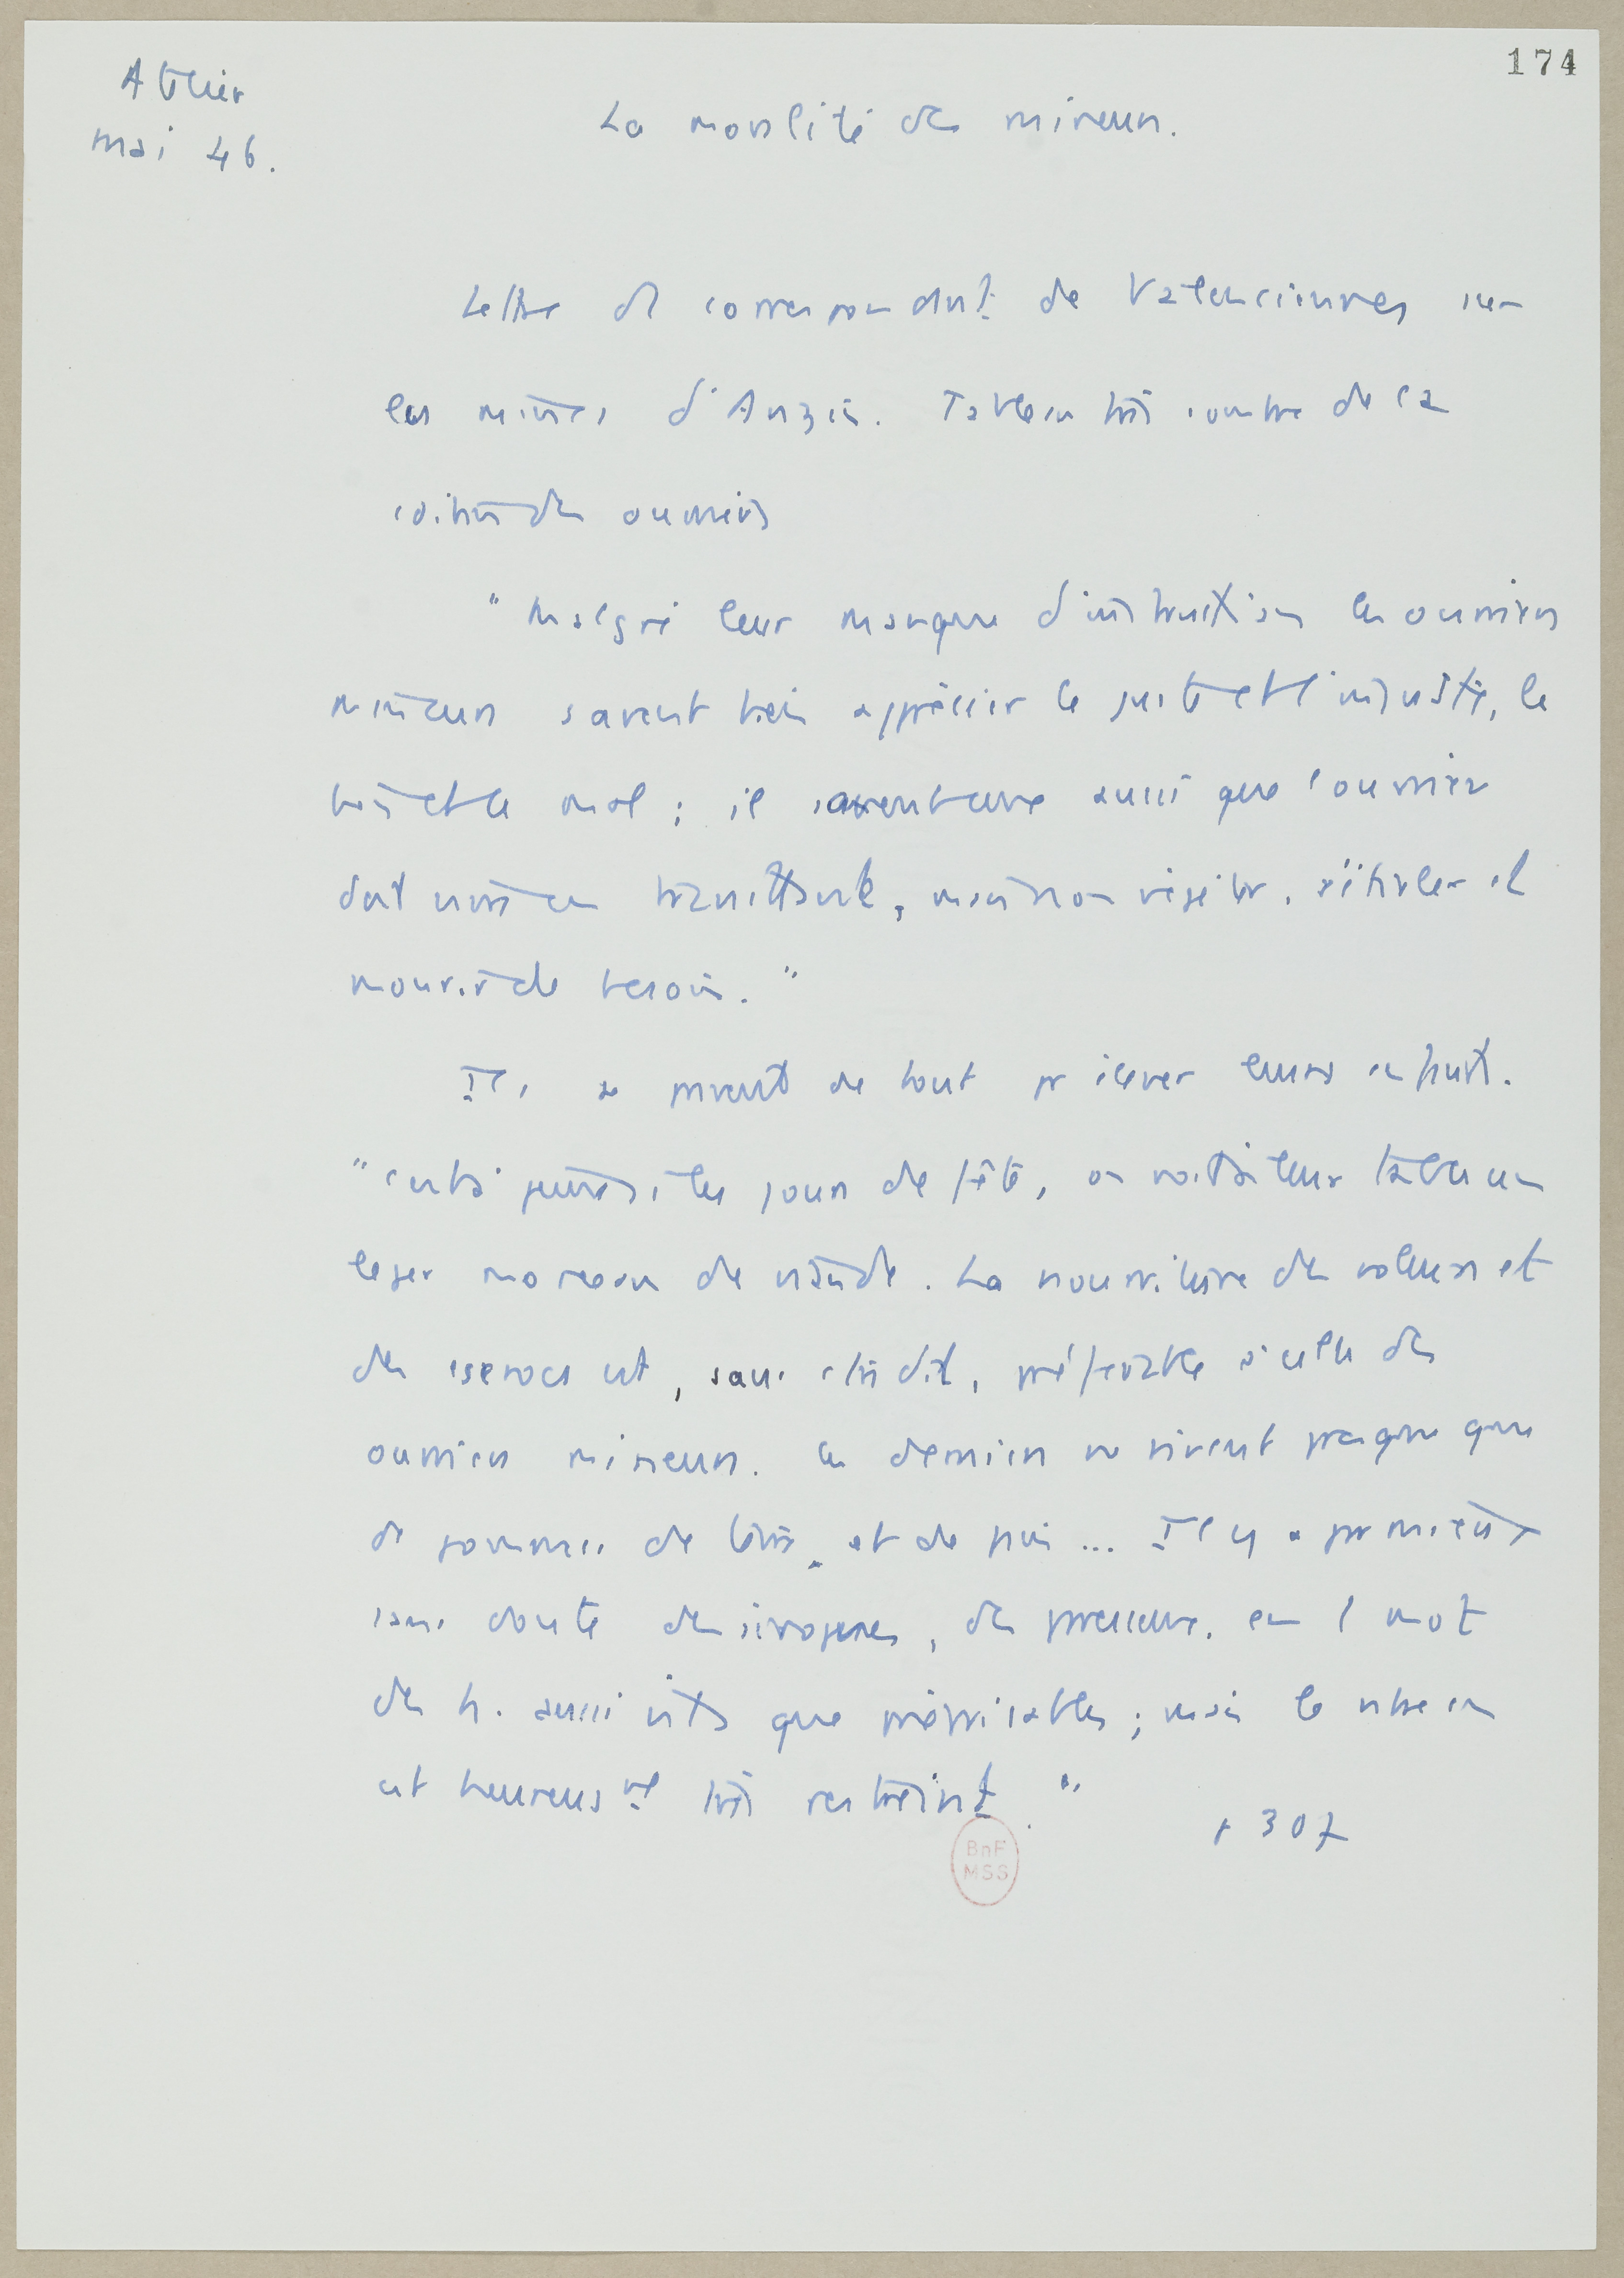 174
Atelier
mai 46.
La moralité des mineurs.
Lettre d'1 correspondant de Valenciennes sur
les mines d'Anzin. Tableau très sombre de la
des ouvriers
"Malgré leur manque d'instruction les ouvriers
mineurs savent bien apprécier le juste et l'injuste, le
bien et le mal ; il savent aussi que l'ouvrier
doit vivre en travaillant, mais non végéter, s'étioler et
mourir de besoin."
Ils se privent de tout pr élever leurs enfants.
"C'est à peine si les jours de fête, on voit à leur table un
léger morceau de viande. La nourriture des voleurs et
des escrocs est, sans contredit, préférable à celle des
ouvriers mineurs. Ces derniers ne vivent presque que
de pommes de terre et de pain ... Il y a parmi eux
sans doute des ivrognes, des paresseux, en 1 mot
des h. aussi vils que méprisables ; mais le nbre en
est heureusmt très restreint."
p 307
BnF
MSS